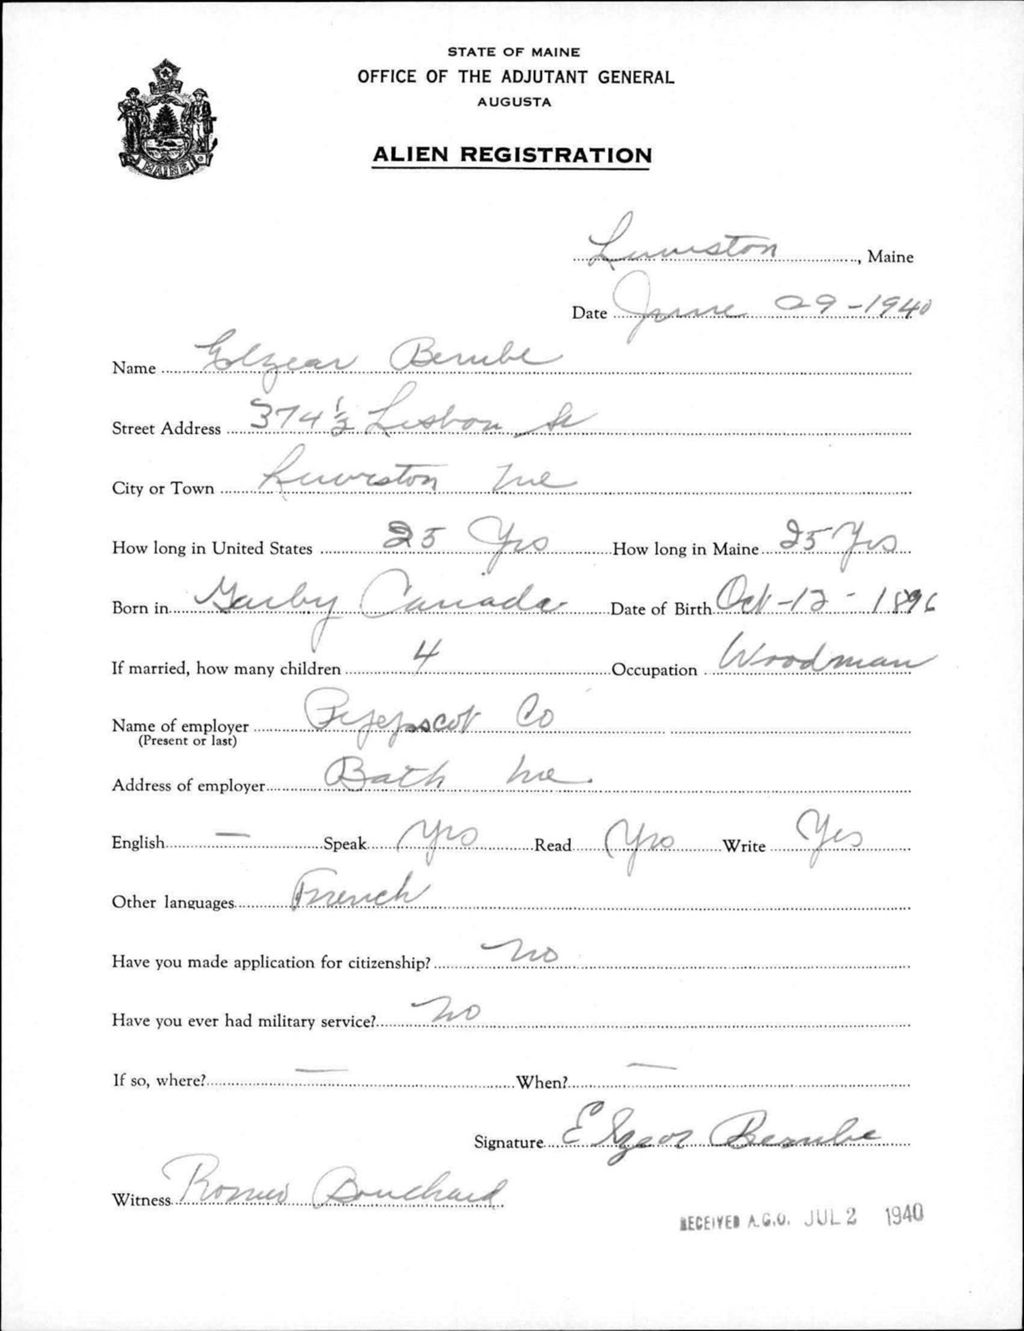 STATE OF MAINE
OFFICE OF THE ADJUTANT GENERAL
AUGUSTA
ALIEN REGISTRATION
MAINE
Lewiston, Maine
Date June 29-1940
Name Elzear Berube
Street Address 374 1/2 Lisbon St
City or Town Lewiston Me
How long in United States 25 Yrs How long in Maine 25 Yrs
Born in Canada Date of Birth Oct-12-1896
If married, how many children 4 Occupation Woodman
Name of employer Pejepscot Co
(Present or last)
Address of employer Bath Me.
English — Speak Yes Read Yes Write Yes
Other languages French
Have you made application for citizenship? No
Have you ever had military service? No
If so, where? — When? —
Signature Elzear Berube
Witness Romeo Bouchard
RECEIVED A.G.O. JUL 2 1940